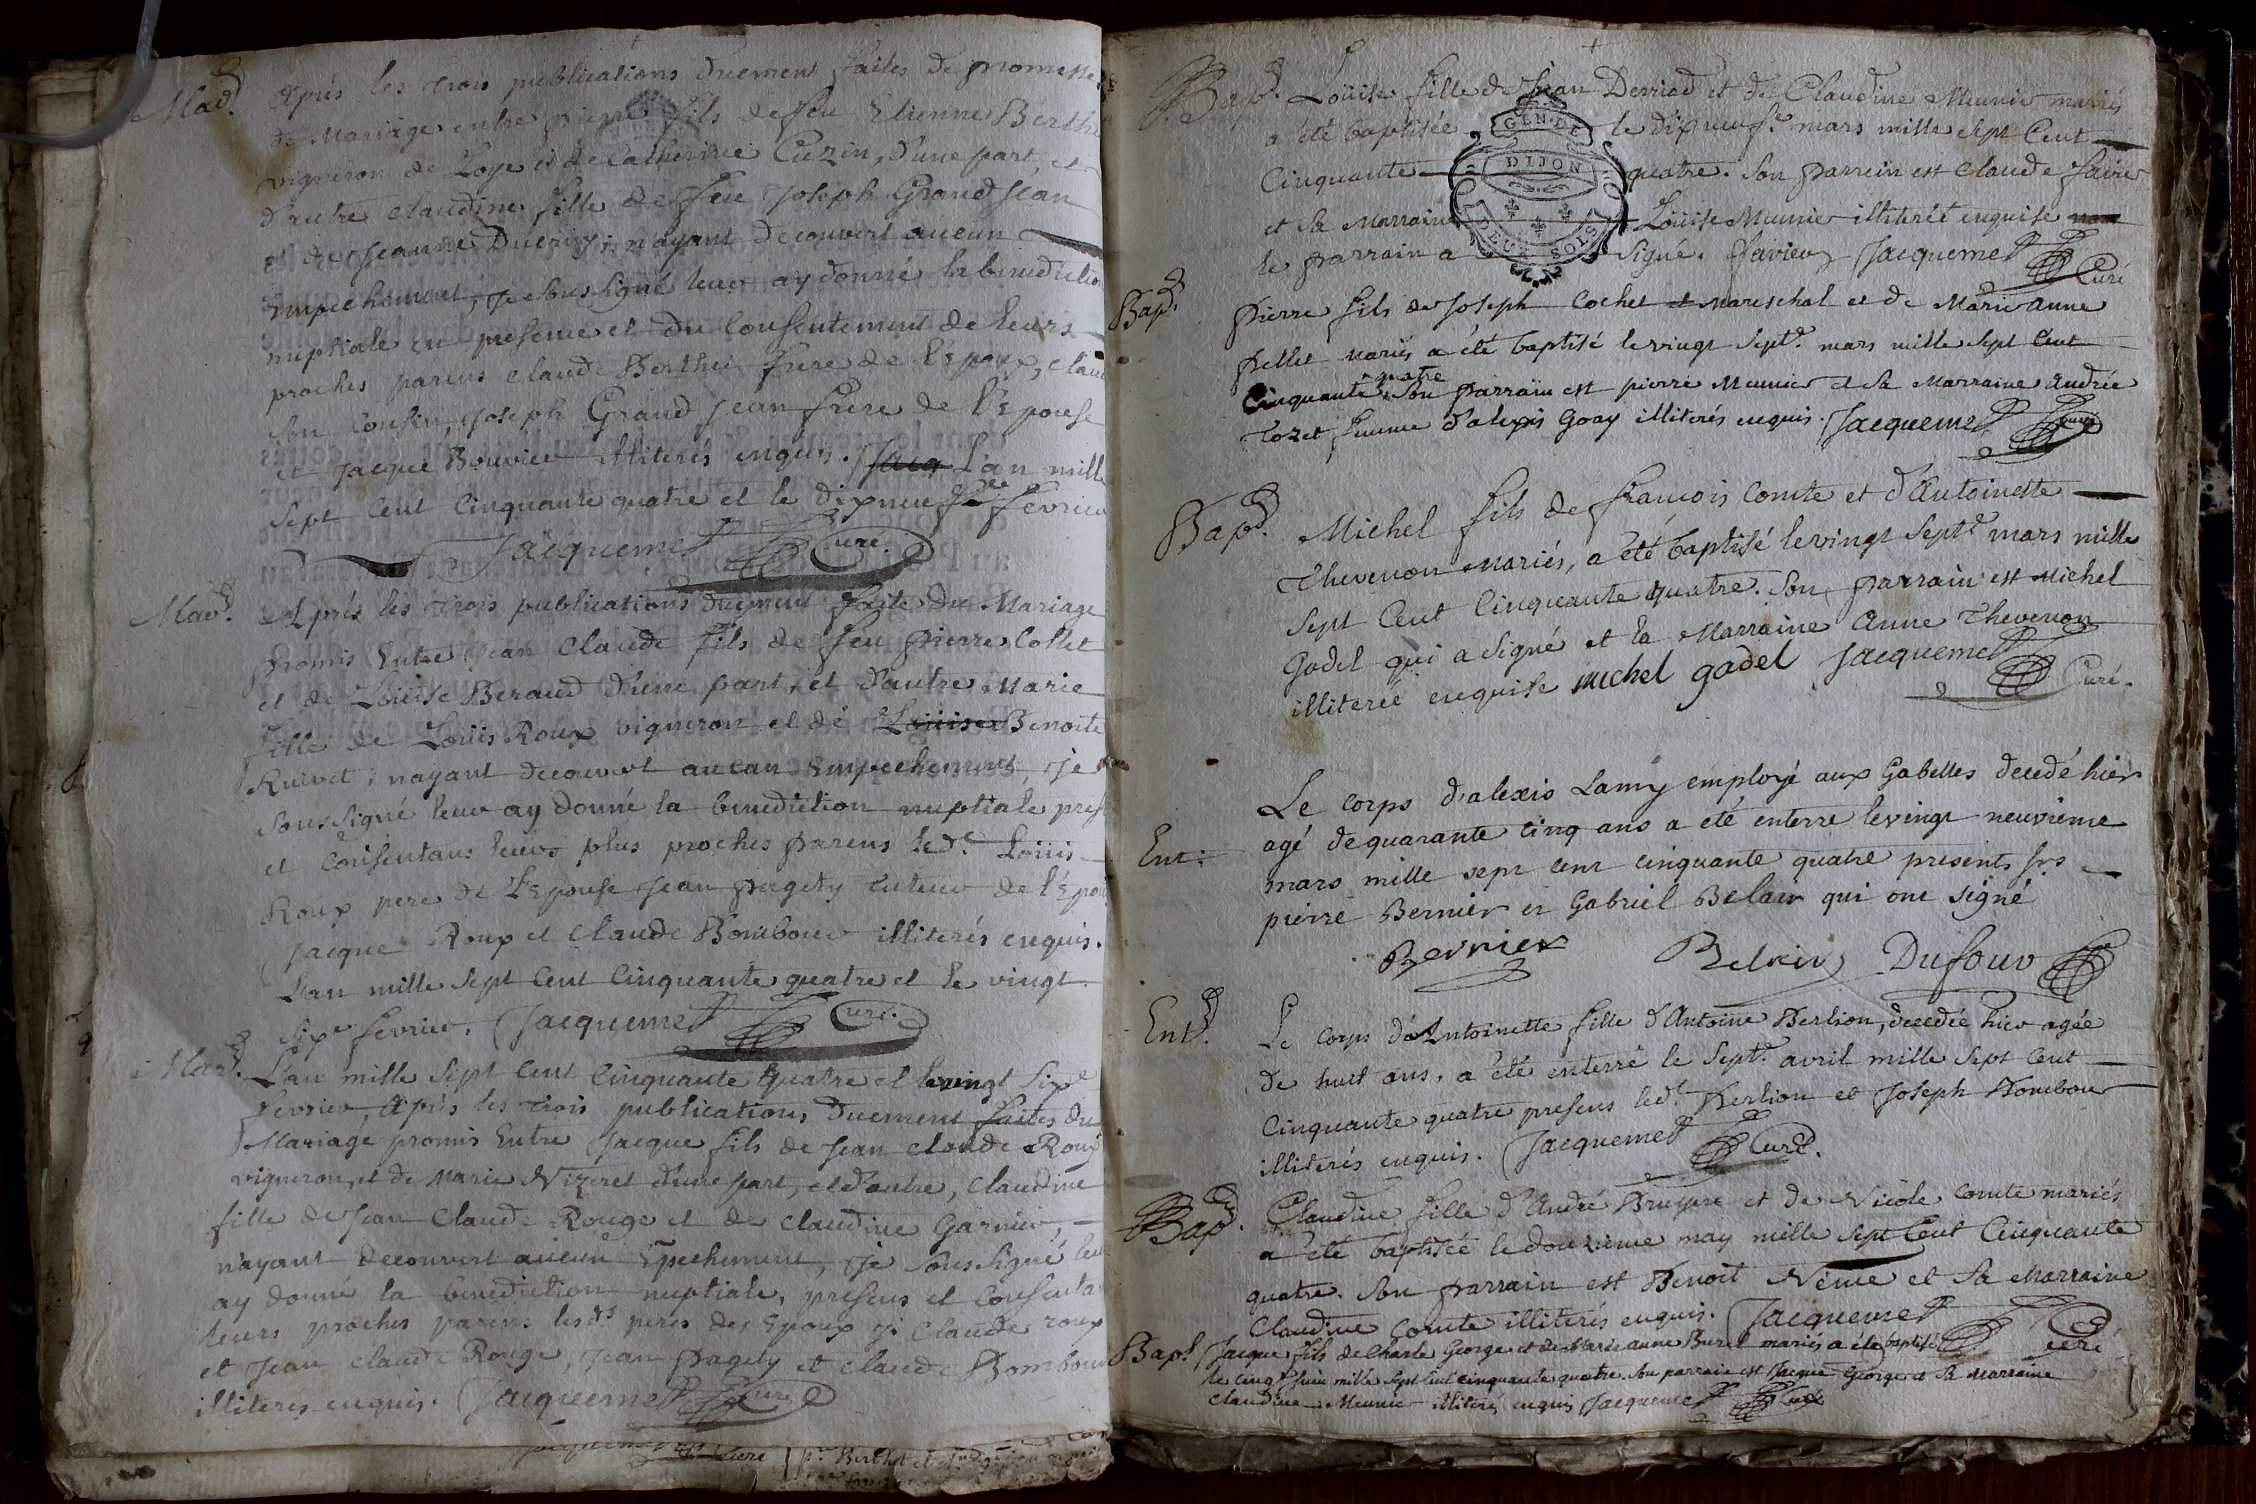 Mard.
Après les trois publications duement faites de promesse
de Mariage entre pierre fils de feu Etienne Berthe
vigneron de Loye et de Catherine Cuzin, d'une part, et
d'autre Claudine fille de feu Joseph Grand Jean
et de Jeanne ; n'ayant decouvert aucun
empechement, Je sous signé leur ay donné la benediction
nuptiale en presence et du Consentement de leurs
proches parens Claude Berthe frere de l'Epoux, Claude
son Cousin, Joseph Grand Jean frere de l'Epouse
et Jacque Bouvier illiterés enquis. Jacq L'an mille
Sept Cent Cinquante quatre et le dixneufe fevrier
Jacquemet Curé.
Mard.
Après les trois publications duement faite du Mariage
promis Entre Jean Claude fils de feu pierre Collet
et de Loüise Beraud d'une part, et d'autre Marie
fille de Loüis Roux vigneron et de Loüise Benoite
Ruivet ; nayant decouvert aucun Empechement, Je
sous signé leur ay donné la benediction nuptiale pres
et Consentans leurs plus proches parens led. Loüis
Roux pere de l'Epouse Jean pagety tuteur de l'Epou
Jacque Roux et Claude Bombour illiterés enquis.
L'an mille Sept Cent Cinquante quatre et le vingt
Sixe fevrier. Jacquemet Curé.
Mard.
L'an mille Sept Cent Cinquante quatre et le vingt Sixe
fevrier, Après les trois publications duement faites du
Mariage promis Entre Jacque fils de Jean Claude Roux
vigneron, et de Marie Nizeret d'une part, et d'autre, Claudine
fille de Jean Claude Rouge et de Claudine Garnier,
n'ayant decouvert aucun Epechement, Je Sous Signé leur
ay donné la benediction nuptiale, presens et Consentans
leurs proches parens lesds. peres des Epoux Claude roux
et Jean Claude Rouge, Jean pagety et Claude Bombour
illiteres enquis. Jacquemet Curé
Bapd.
Loüise fille de Jean Derriad et de Claudine Meunier mariés
a été baptisée le dixneufe. mars mille Sept Cent
Cinquante quatre. Son parrein est Claude favier
et Sa Marraine Loüise Meunier illiterée enquise
le parrain a Signé. favier Jacquemet
Curé
GEN. DE
DIJON
DEUX SOLS
Bapd.
Pierre fils de Joseph Cochet et Mareschal et de Marie Anne
pellet mariés a été baptisé le vingt Septe. mars mille Sept Cent
quatre
Cinquante Son parrain est pierre Meunier et Sa Marraine Andrée
Tozet femme d'alexis Goay illiterés enquis. Jacquemet Curé
Bapd.
Michel fils de françois Comte et d'Antoinette
Thevenon Mariés, a été baptisé le vingt Septe mars mille
Sept Cent Cinquante quatre. Son parrain est Michel
Gadel qui a Signé et la Marraine Anne Thevenon
illiterée enquise michel gadel Jacquemet
Curé.
Ent:
Le corps d'alexis Lamy employé aux Gabelles decedé hier
agé de quarante cinq ans a eté enterre le vingt neuvieme
mars mille sept cent cinquante quatre presents srs
pierre Bernier et Gabriel Belair qui ont signé
Bernier Belair Dufour
Entd.
Le Corps d'Antoinette fille d'Antoine Berlion, decedée hier agée
de huit ans, a été enterré le Septe. avril mille Sept Cent
Cinquante quatre presens led. Berlion et Joseph Bombour
illiterés enquis. Jacquemet Curé.
Bapd.
Claudine fille d'André Bruyere et de Nicole Comte mariés
a été baptisée le douzieme may mille Sept Cent Cinquante
quatre. Son parrain est Benoit Neme et Sa Marraine
Claudine Comte illiterés enquis. Jacquemet
Curé
Bapt.
Jacque fils de Charle George et de Marie anne Buret mariés a été baptisé
le cinqe Juin mille Sept Cent cinquante quatre. Son parrain est Jacque George et Sa Marraine
Claudine Meunier illiterés enquis Jacquemet Curé